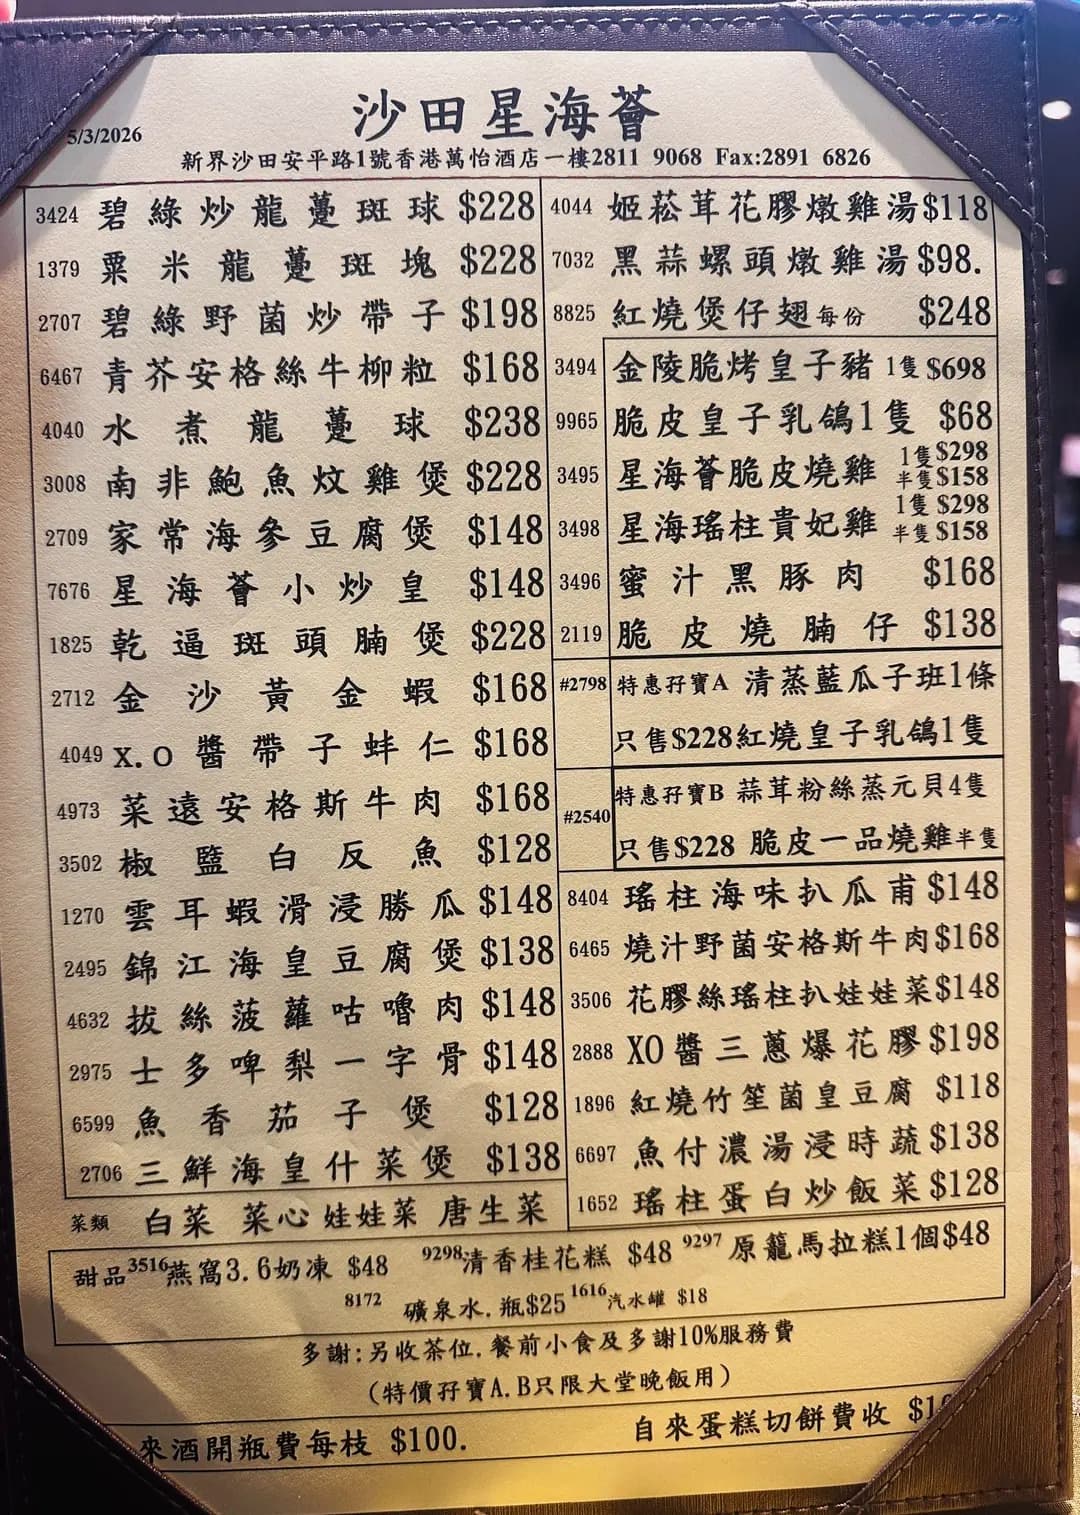 沙田星海薈
5/3/2026
新界沙田安平路1號香港萬怡酒店一樓2811 9068 Fax:2891 6826
3424 碧綠炒龍躉斑球 $228
1379 粟米龍躉斑塊 $228
2707 碧綠野菌炒帶子 $198
6467 青芥安格絲牛柳粒 $168
4040 水煮龍躉球 $238
3008 南非鮑魚炆雞煲 $228
2709 家常海參豆腐煲 $148
7676 星海薈小炒皇 $148
1825 乾逼斑頭腩煲 $228
2712 金沙黃金蝦 $168
4049 X.O醬帶子蚌仁 $168
4973 菜遠安格斯牛肉 $168
3502 椒盬白反魚 $128
1270 雲耳蝦滑浸勝瓜 $148
2495 錦江海皇豆腐煲 $138
4632 拔絲菠蘿咕嚕肉 $148
2975 士多啤梨一字骨 $148
6599 魚香茄子煲 $128
2706 三鮮海皇什菜煲 $138
菜類 白菜 菜心 娃娃菜 唐生菜
4044 姬菘茸花膠燉雞湯 $118
7032 黑蒜螺頭燉雞湯 $98.
8825 紅燒煲仔翅每份 $248
3494 金陵脆烤皇子豬 1隻 $698
9965 脆皮皇子乳鴿1隻 $68
3495 星海薈脆皮燒雞 1隻 $298
半隻 $158
3498 星海瑤柱貴妃雞 1隻 $298
半隻 $158
3496 蜜汁黑豚肉 $168
2119 脆皮燒腩仔 $138
#2798 特惠孖寶A 清蒸藍瓜子班1條
只售$228紅燒皇子乳鴿1隻
#2540 特惠孖寶B 蒜茸粉絲蒸元貝4隻
只售$228 脆皮一品燒雞半隻
8404 瑤柱海味扒瓜甫 $148
6465 燒汁野菌安格斯牛肉 $168
3506 花膠絲瑤柱扒娃娃菜 $148
2888 XO醬三蔥爆花膠 $198
1896 紅燒竹笙菌皇豆腐 $118
6697 魚付濃湯浸時蔬 $138
1652 瑤柱蛋白炒飯菜 $128
甜品 3516燕窩3.6奶凍 $48 9298清香桂花糕 $48 9297 原籠馬拉糕1個$48
8172 礦泉水.瓶$25 1616汽水罐 $18
多謝:另收茶位.餐前小食及多謝10%服務費
(特價孖寶A.B只限大堂晚飯用)
來酒開瓶費每枝 $100. 自來蛋糕切餅費收